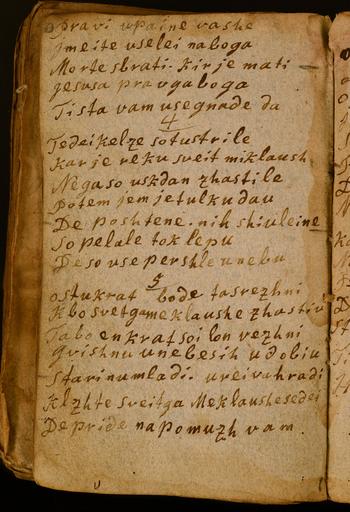 opravi upaine vashe
jmeite uselei naboga
Morte sbrati. kir je mati
jesusa pravga boga
Tista vam usegnade da
4
Tedei kelze so tustrile
kar je reku sveit miklaush
Nega so uskdan zhastile
potem jem je tulku dau
De poshtene. nih shiuleine
So pelale tok lepu
De so use pershle unebu
5
ostukrat bode ta srezhni
Kbo svetga meklaushe zhastiu
Tabo enkrat soi lon vezhni
Gvishnu unebesih udobiu
Starinu mladi. ureivu hradi
Klzhte sveitga Meklaushe sedei
De pride napomuzh vam.